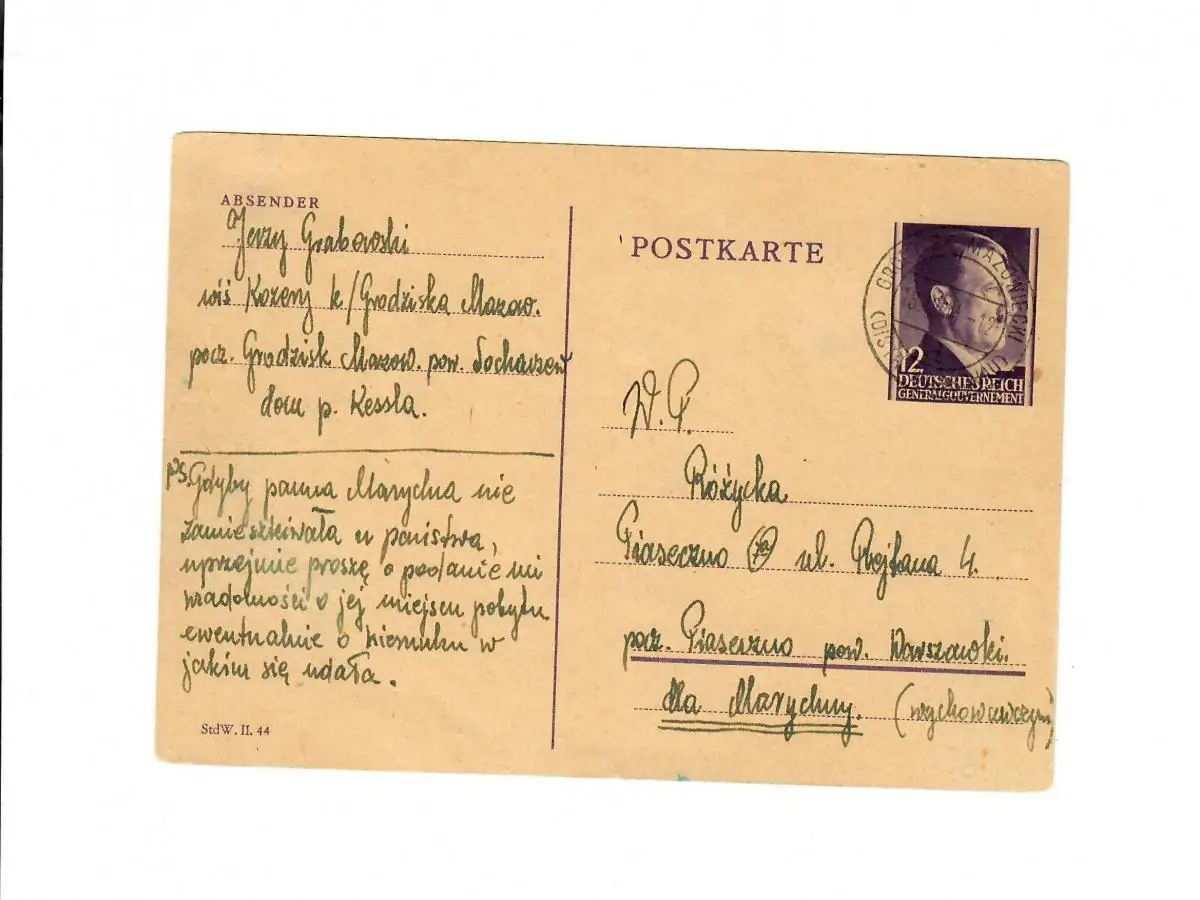 ABSENDER
Jerzy Grabowski
wieś Kozery k/Grodziska Mazow.
pocz. Grodzisk Mazow. pow. Sochaczew
dom p. Kessla.
PS. Gdyby panna Marychna nie
zamieszkiwała u państwa,
uprzejmie proszę o podanie mi
wiadomości o jej miejscu pobytu
ewentualnie o kierunku w
jakim się udała.
StdW. II. 44
POSTKARTE
MAZOWIECKI
12
DEUTSCHES REICH
GENERALGOUVERNEMENT
W.P.
Różycka
Piaseczno ul. Rejtana 4.
pocz. Piaseczno pow. Warszawski.
dla Marychny. (wychowawczyni)